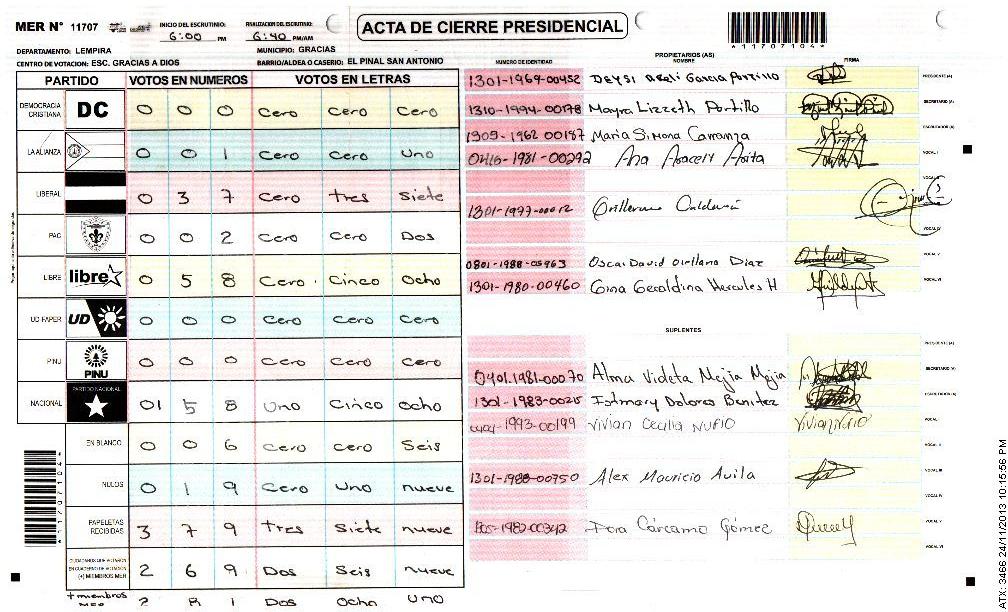 MER N° 11707
INICIO DEL ESCRUTINIO: 6:00 PM
FINALIZACION DEL ESCRUTINIO: 6:40 PM/AM
ACTA DE CIERRE PRESIDENCIAL
*11707104*
DEPARTAMENTO: LEMPIRA
MUNICIPIO: GRACIAS
CENTRO DE VOTACION: ESC. GRACIAS A DIOS
BARRIO/ALDEA O CASERIO: EL PINAL SAN ANTONIO
PARTIDO VOTOS EN NUMEROS VOTOS EN LETRAS
DEMOCRACIA CRISTIANA DC 0 0 0 Cero Cero Cero
LA ALIANZA 0 0 1 Cero Cero Uno
LIBERAL 0 3 7 Cero Tres Siete
PAC 0 0 2 Cero Cero Dos
LIBRE libre 0 5 8 Cero Cinco Ocho
UD FAPER UD 0 0 0 Cero Cero Cero
PINU PINU 0 0 0 Cero Cero Cero
NACIONAL PARTIDO NACIONAL 01 5 8 Uno Cinco Ocho
EN BLANCO 0 0 6 Cero Cero Seis
NULOS 0 1 9 Cero Uno nueve
PAPELETAS RECIBIDAS 3 7 9 Tres Siete nueve
CIUDADANOS QUE VOTARON EN CUADERNO DE VOTACION (+) MIEMBROS MER 2 6 9 Dos Seis nueve
+ miembros MER 2 8 1 Dos Ocho Uno
NUMERO DE IDENTIDAD
PROPIETARIOS (AS)
NOMBRE
FIRMA
1301-1969-00452 Deysi Areli Garcia Portillo PRESIDENTE (A)
1310-1994-00178 Mayra Lizzeth Portillo SECRETARIO (A)
1305-1962 00187 Maria Simona Carranza ESCRUTADOR (A)
0416-1981-00292 Ana Araceli Arita VOCAL I
VOCAL II
1301-1977-00012 Guillermo Calderón
VOCAL IV
0801-1988-05963 Oscar David Orellana Diaz VOCAL V
1301-1980-00460 Gina Geraldina Hercules H VOCAL VI
SUPLENTES
PRESIDENTE (A)
0401.1981-00070 Alma Violeta Mejia Mejia SECRETARIO (A)
1301-1983-00215 Istmary Dolores Benitez ESCRUTADOR (A)
1993-00199 Vivian Cecilia NUFIO VOCAL
VOCAL II
1301-1988-00750 Alex Mauricio Avila VOCAL III
VOCAL IV
1982-00342 Dora Cárcamo Gómez VOCAL V
VOCAL VI
*11707104*
ATX: 3466 24/11/2013 10:15:56 PM